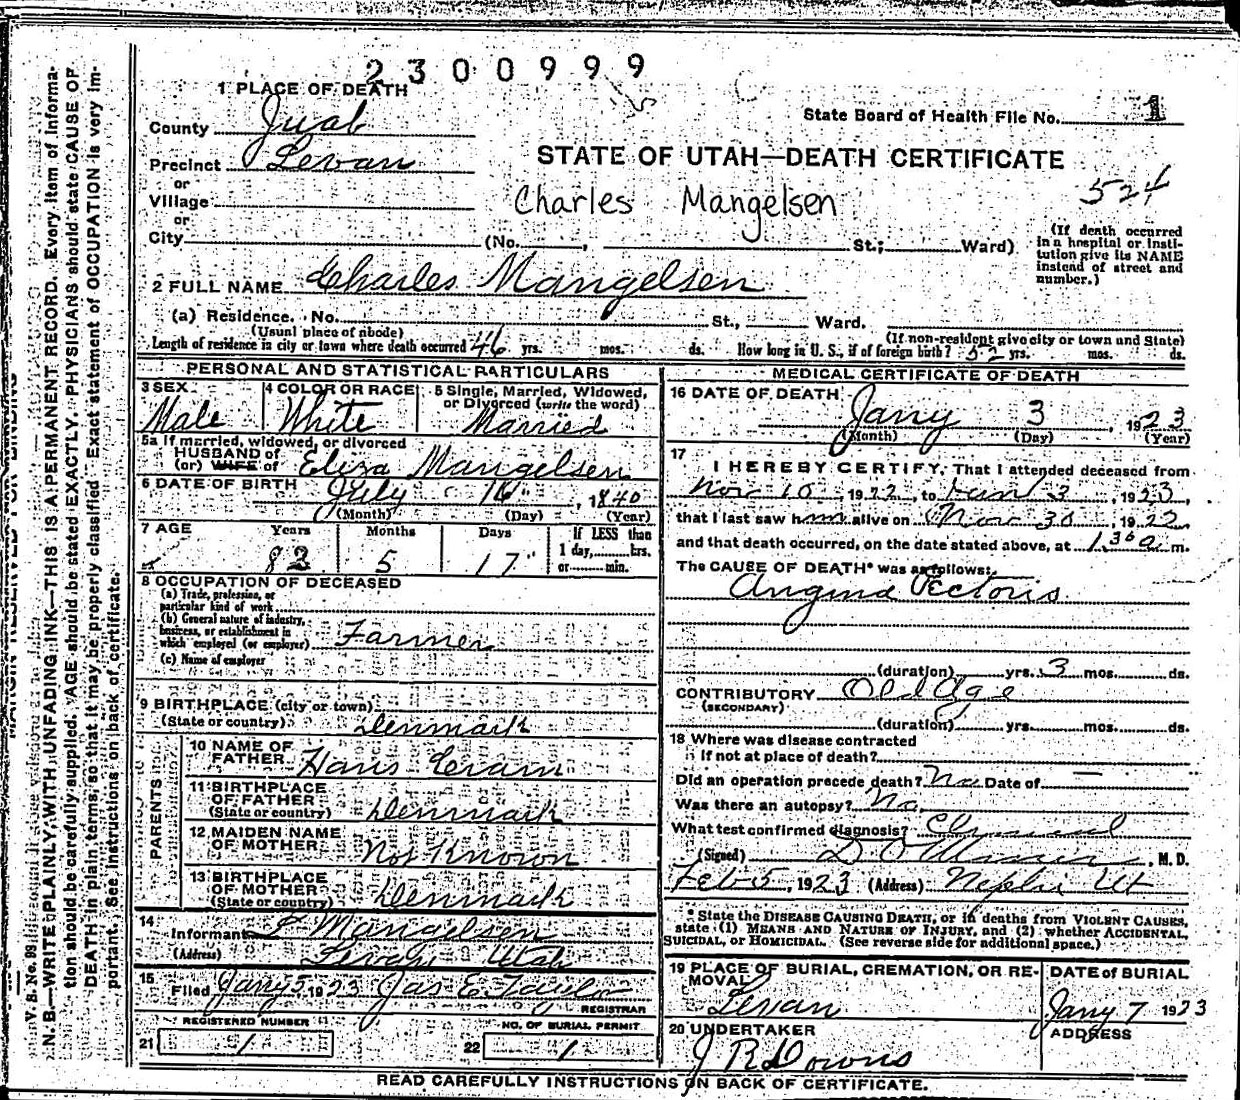 2300999
1 PLACE OF DEATH
State Board of Health File No. 1
County Juab
Precinct Levan
STATE OF UTAH—DEATH CERTIFICATE
or
Village
Charles Mangelsen
524
or
City (No. , St.; Ward)
(If death occurred in a hospital or institution give its NAME instead of street and number.)
2 FULL NAME Charles Mangelsen
(a) Residence. No. St., Ward.
(Usual place of abode) (If non-resident give city or town and State)
Length of residence in city or town where death occurred 46 yrs. mos. ds. How long in U. S., if of foreign birth? 52 yrs. mos. ds.
PERSONAL AND STATISTICAL PARTICULARS
3 SEX Male
4 COLOR OR RACE White
5 Single, Married, Widowed, or Divorced (write the word) Married
5a If married, widowed, or divorced
HUSBAND of
(or) WIFE of Eliza Mangelsen
6 DATE OF BIRTH July 16, 1840
(Month) (Day) (Year)
7 AGE Years Months Days If LESS than
82 5 17 1 day, hrs.
or min.
8 OCCUPATION OF DECEASED
(a) Trade, profession, or
particular kind of work
(b) General nature of industry,
business, or establishment in
which employed (or employer) Farmer
(c) Name of employer
9 BIRTHPLACE (city or town)
(State or country) Denmark
PARENTS
10 NAME OF
FATHER Hans
11 BIRTHPLACE
OF FATHER
(State or country) Denmark
12 MAIDEN NAME
OF MOTHER Not Known
13 BIRTHPLACE
OF MOTHER
(State or country) Denmark
14
Informant Mangelsen
(Address) Levan Utah
15
Filed Jany 5, 1923 Jas E. Taylor
REGISTRAR
REGISTERED NUMBER NO. OF BURIAL PERMIT
21 1 22 1
MEDICAL CERTIFICATE OF DEATH
16 DATE OF DEATH
Jany 3 1923
(Month) (Day) (Year)
17
I HEREBY CERTIFY, That I attended deceased from
Nov 10, 1922, to Jan 3, 1923,
that I last saw him alive on Nov 30, 1922
and that death occurred, on the date stated above, at 1.30 a. m.
The CAUSE OF DEATH* was as follows:
Angina Pectoris
(duration) yrs. 3 mos. ds.
CONTRIBUTORY Old Age
(SECONDARY)
(duration) yrs. mos. ds.
18 Where was disease contracted
If not at place of death?
Did an operation precede death? No Date of —
Was there an autopsy? No
What test confirmed diagnosis? Clinical
(Signed) D O Miner, M. D.
Feb 5, 1923 (Address) Nephi Ut
* State the DISEASE CAUSING DEATH, or in deaths from VIOLENT CAUSES,
state (1) MEANS AND NATURE OF INJURY, and (2) whether ACCIDENTAL,
SUICIDAL, or HOMICIDAL. (See reverse side for additional space.)
19 PLACE OF BURIAL, CREMATION, OR RE-
MOVAL
Levan
DATE of BURIAL
Jany 7 1923
20 UNDERTAKER ADDRESS
J R Downs
READ CAREFULLY INSTRUCTIONS ON BACK OF CERTIFICATE.
V. S. No. 99
N. B.—WRITE PLAINLY, WITH UNFADING INK—THIS IS A PERMANENT RECORD. Every item of informa-
tion should be carefully supplied. AGE should be stated EXACTLY. PHYSICIANS should state CAUSE OF
DEATH in plain terms, so that it may be properly classified. Exact statement of OCCUPATION is very im-
portant. See instructions on back of certificate.